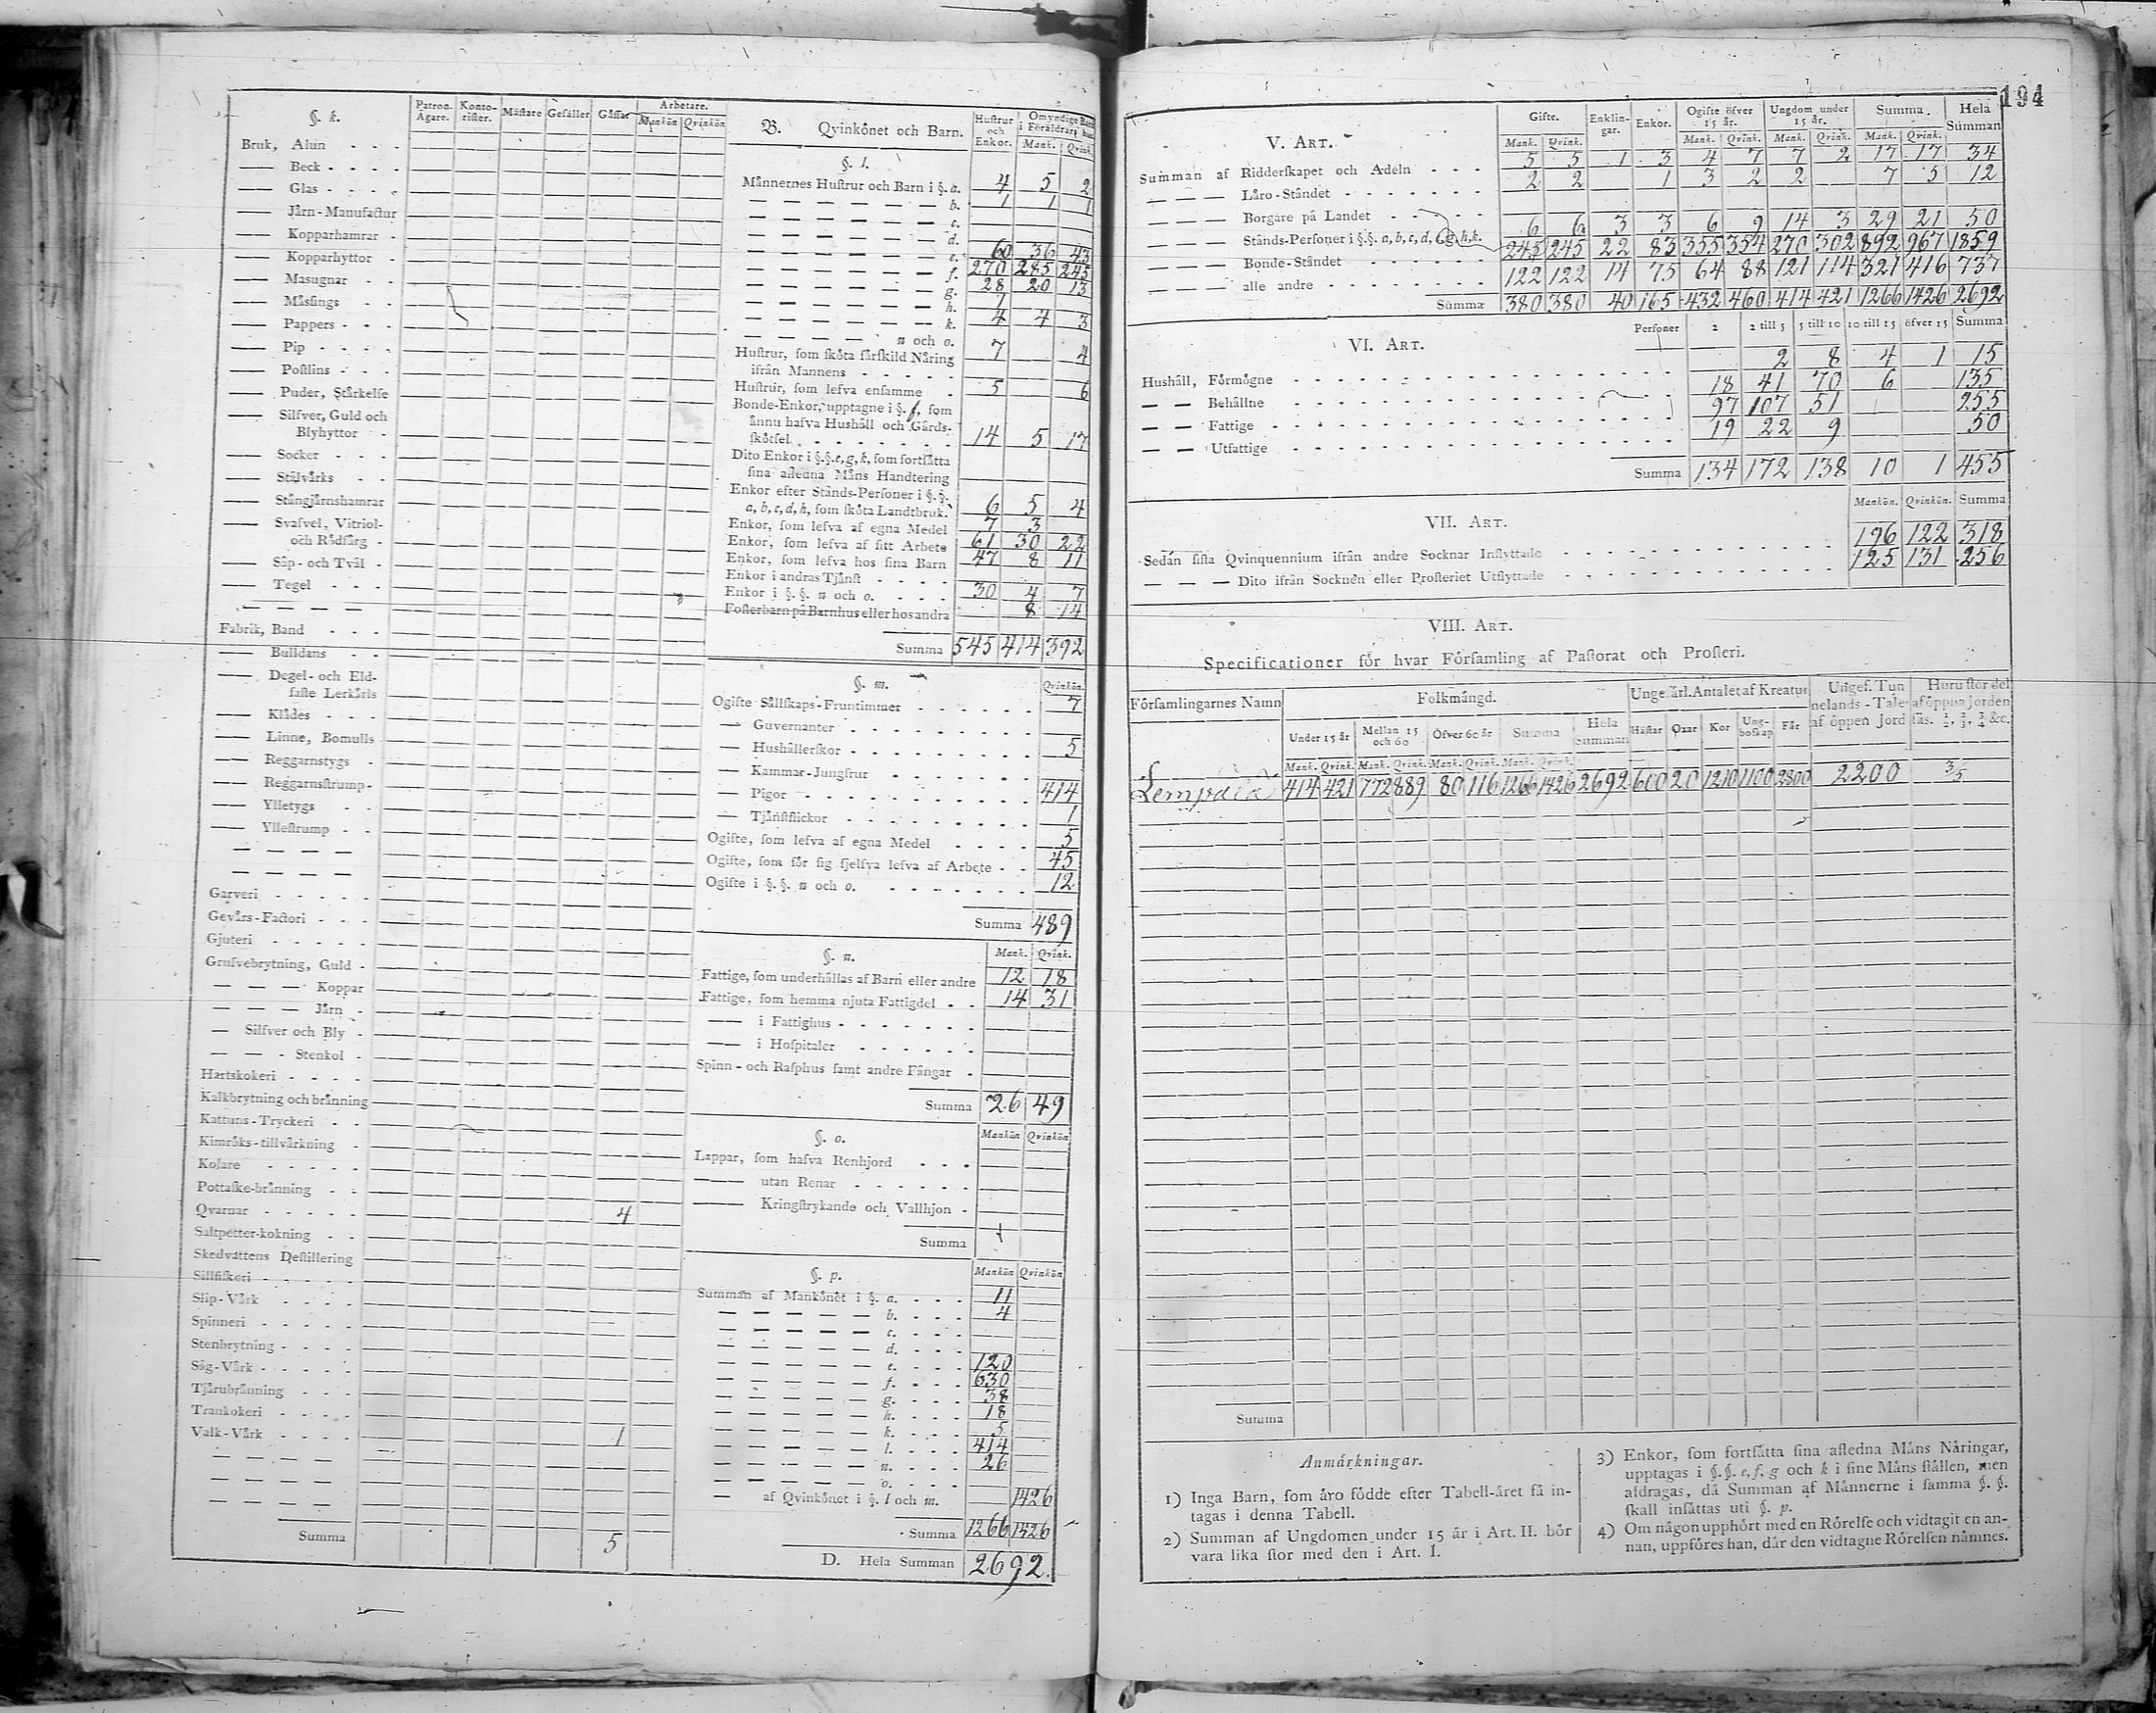 194
§. k. Patron. Ägare. Konto-rister. Mästare Gesäller Gåssar Arbetare. Mankön Qvinkön
Bruk, Alun
— Beck
— Glas
— Järn-Manufactur
— Kopparhamrar
— Kopparhyttor
— Masugnar
— Mässings
— Pappers
— Pip
— Postlins
— Puder, Stärkelse
— Silfver, Guld och
Blyhyttor
— Socker
— Stålvärks
— Stångjärnshamrar
— Svafvel, Vitriol-
och Rödfärg
— Såp- och Tvål
— Tegel
— — — —
Fabrik, Band
— Bulldans
— Degel- och Eld-
faste Lerkärls
— Klädes
— Linne, Bomulls
— Reggarnstygs
— Reggarnsstrump-
— Ylletygs
— Yllestrump
— — — —
— — — —
Garveri
Gevärs-Factori
Gjuteri
Grufvebrytning, Guld
— — — Koppar
— — — Järn
— Silfver och Bly
— — Stenkol
Hartskokeri
Kalkbrytning och bränning
Kattuns-Tryckeri
Kimröks-tillvärkning
Kolare
Pottaske-bränning
Qvarnar 4
Saltpetter-kokning
Skedvattens Destillering
Sillfiskeri
Slip-Värk
Spinneri
Stenbrytning
Såg-Värk
Tjärubränning
Trankokeri
Valk-Värk 1
— — — —
— — — —
— — — —
Summa 5
B. Qvinkönet och Barn. Hustrur och Enkor. Omyndige Barn i Föräldrars hus. Mank. Qvink.
§. l.
Männernes Hustrur och Barn i §. a. 4 5 2
— — — — — — b. 1 1 1
— — — — — — c.
— — — — — — d.
— — — — — — e. 60 36 43
— — — — — — f. 270 285 245
— — — — — — g. 28 20 13
— — — — — — h. 1
— — — — — — k. 4 4 3
— — — — — n och o. 7 4
Hustrur, som sköta särskild Näring
ifrån Mannens
Hustrur, som lefva ensamme 5 6
Bonde-Enkor, upptagne i §. f, som
ännu hafva Hushåll och Gårds-
skötsel 14 5 17
Dito Enkor i §.§. e, g, k, som fortsätta
sina afledna Mäns Handtering
Enkor efter Stånds-Personer i §.§.
a, b, c, d, h, som sköta Landtbruk. 6 5 4
Enkor, som lefva af egna Medel 7 3
Enkor, som lefva af sitt Arbete 61 30 22
Enkor, som lefva hos sina Barn 47 8 11
Enkor i andras Tjänst
Enkor i §. §. n och o. 30 4 7
Fosterbarn på Barnhus eller hos andra 8 14
Summa 545 414 392
§. m. Qvinkön.
Ogifte Sällskaps-Fruntimmer 7
— Guvernanter
— Hushållerskor 5
— Kammar-Jungfrur
— Pigor 414
— Tjänstflickor 1
Ogifte, som lefva af egna Medel 5
Ogifte, som för sig sjelfva lefva af Arbete 45
Ogifte i §. §. n och o. 12
Summa 489
§. n. Mank. Qvink.
Fattige, som underhållas af Barn eller andre 12 18
Fattige, som hemma njuta Fattigdel 14 31
— i Fattighus
— i Hospitaler
Spinn- och Rasphus samt andre Fångar
Summa 26 49
§. o. Mankön Qvinkön
Lappar, som hafva Renhjord
— utan Renar
— Kringstrykande och Vallhjon
Summa
§. p. Mankön Qvinkön
Summan af Mankönet i §. a. 11
— — — — — b. 4
— — — — — c.
— — — — — d.
— — — — — e. 120
— — — — — f. 630
— — — — — g. 38
— — — — — h. 18
— — — — — k. 5
— — — — — l. 414
— — — — — n. 26
— — — — — o.
— af Qvinkönet i §. l och m. 1426
Summa 1266 1426
D. Hela Summan 2692.
V. Art. Gifte. Mank. Qvink. Enklin-gar. Enkor. Ogifte öfver 15 år. Mank. Qvink. Ungdom under 15 år. Mank. Qvink. Summa. Mank. Qvink. Hela Summan
Summan af Ridderskapet och Adeln 5 5 1 3 4 7 7 2 17 17 34
— — — Läro-Ståndet 2 2 1 3 2 2 7 5 12
— — — Borgare på Landet
— — — Stånds-Personer i §.§. a, b, c, d, e, g, h, k. 6 6 3 3 6 9 14 3 29 21 50
— — — Bonde-Ståndet 245 245 22 83 355 354 270 302 892 967 1859
— — — alle andre 122 122 14 75 64 88 121 114 321 416 737
Summa 380 380 40 165 432 460 414 421 1266 1426 2692
VI. Art. Personer 2 2 till 5 5 till 10 10 till 15 öfver 15 Summa
Hushåll, Förmögne 2 8 4 1 15
— — Behållne 18 41 70 6 135
— — Fattige 97 107 51 255
— — Utfattige 19 22 9 50
Summa 134 172 138 10 1 455
VII. Art. Mankön. Qvinkön. Summa
Sedan sista Qvinquennium ifrån andre Socknar Inflyttade 196 122 318
— — — Dito ifrån Socknen eller Prosteriet Utflyttade 125 131 256
VIII. Art.
Specificationer för hvar Församling af Pastorat och Prosteri.
Församlingarnes Namn Folkmängd. Ungefärl. Antalet af Kreatur Ungef. Tunnelands-Talet af öppen Jord Huru stor del af öppna Jorden sås. 1/2, 2/3, 3/4 &c.
Under 15 år Mellan 15 och 60 Öfver 60 år Summa Hela Summan Hästar Oxar Kor Ung-boskap Får
Mank. Qvink. Mank. Qvink. Mank. Qvink. Mank. Qvink.
Lempälä 414 421 772 889 80 116 1266 1426 2692 600 20 1210 1100 2800 2200 3/5
Summa
Anmärkningar.
1) Inga Barn, som äro födde efter Tabell-året få in-
tagas i denna Tabell.
2) Summan af Ungdomen under 15 år i Art. II. bör
vara lika stor med den i Art. I.
3) Enkor, som fortsätta sina afledna Mäns Näringar,
upptagas i §. §. e, f, g och k i sine Mäns ställen, men
afdragas, då Summan af Männerne i samma §. §.
skall insättas uti §. p.
4) Om någon upphört med en Rörelse och vidtagit en an-
nan, uppföres han, där den vidtagne Rörelsen nämnes.